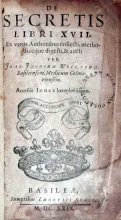 DE
SECRETIS
LIBRI XVII.
Ex variis Authoribus collecti, metho-
dicéque digesti, & aucti
PER
JOAN. JACOBUM WECKERUM,
Basileensem, Medicum Colmari-
ensem.
Accessit INDEX locupletissimus.
BASILEÆ,
Sumptibus LUDOVICI